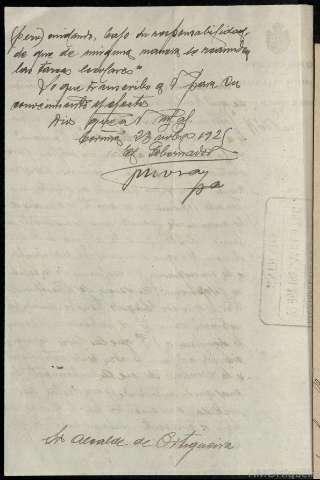 pero cuidando, bajo su responsabilidad,
de que de ninguna manera lo
las tareas escolares"
Lo que transcribo a V para su
conocimiento y efectos
Dios gue a V
Coruña 23 nobre 192
El Gobernador
Sr Alcalde de Ortigueira